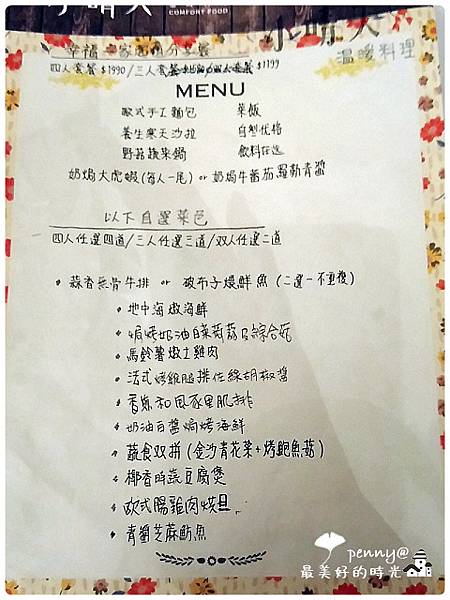 COMFORT FOOD
小晴天
溫暖料理
四人套餐 $1990/三人套餐 $1199
MENU
歐式手工麵包 菜飯
養生寒天沙拉 自製優格
野菇蔬菜鍋 飲料任選
奶焗大虎蝦(每人一尾) or 奶焗牛蕃茄羅勒青醬
以下自選菜色
四人任選四道/三人任選三道/双人任選二道
蒜香無骨牛排 or 破布子燒鮮魚 (二選一不重複)
地中海燉海鮮
焗烤奶油白菜蘑菇綜合菇
馬鈴薯燉土雞肉
法式烤雞腿排佐綠胡椒醬
香煎和風豚里肌排
奶油白醬焗烤海鮮
蔬食双拼(金沙青花菜+烤鮑魚菇)
椰香時蔬豆腐煲
歐式腸雞肉烘旦
青醬芝麻魴魚
penny@
最美好的時光